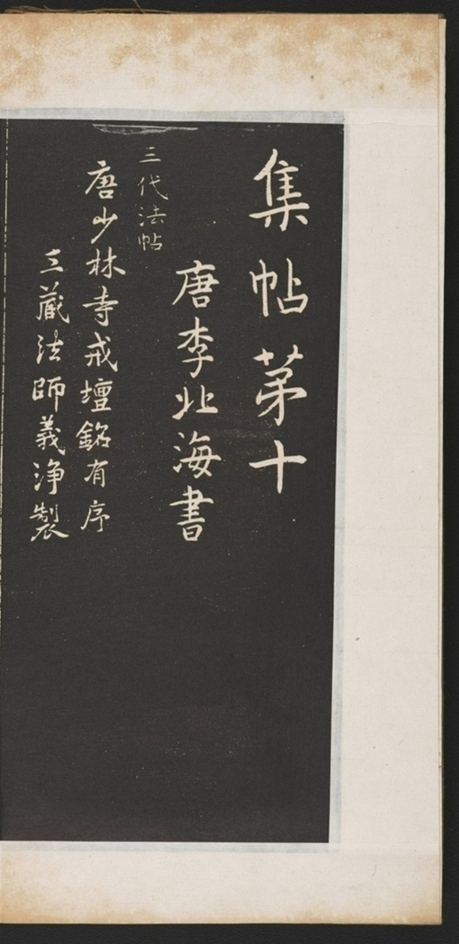 集帖苐十
唐李北海書
三代法帖
唐少林寺戒壇銘有序
三藏法師義浄製